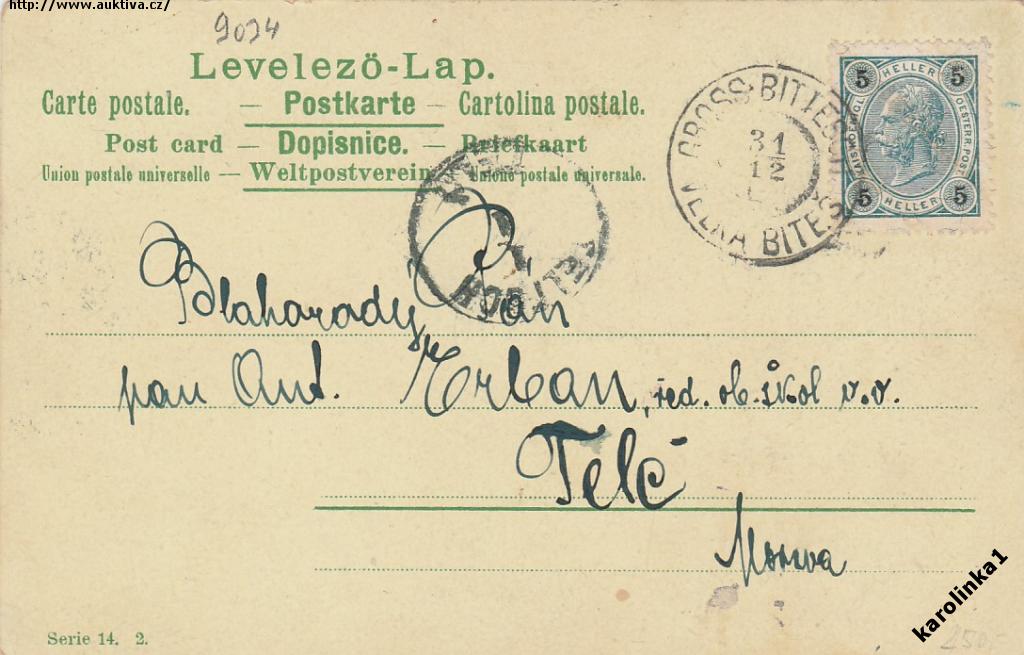 http://www.auktiva.cz/
9034
Levelezö-Lap.
Carte postale. — Postkarte — Cartolina postale.
Post card — Dopisnice. — Briefkaart
Union postale universelle — Weltpostverein — Unione postale universale.
GROSS-BITTESCH
31
12
VELKÁ BITEŠ
5 HELLER 5
KAIS. KÖNIGL. OESTERR. POST
5 HELLER 5
TELTSCH
Blaharady Pán
pan Ant. Erban, řed. ob. škol v. v.
Telč
Morava
Serie 14. 2.
karolinka1
250.-